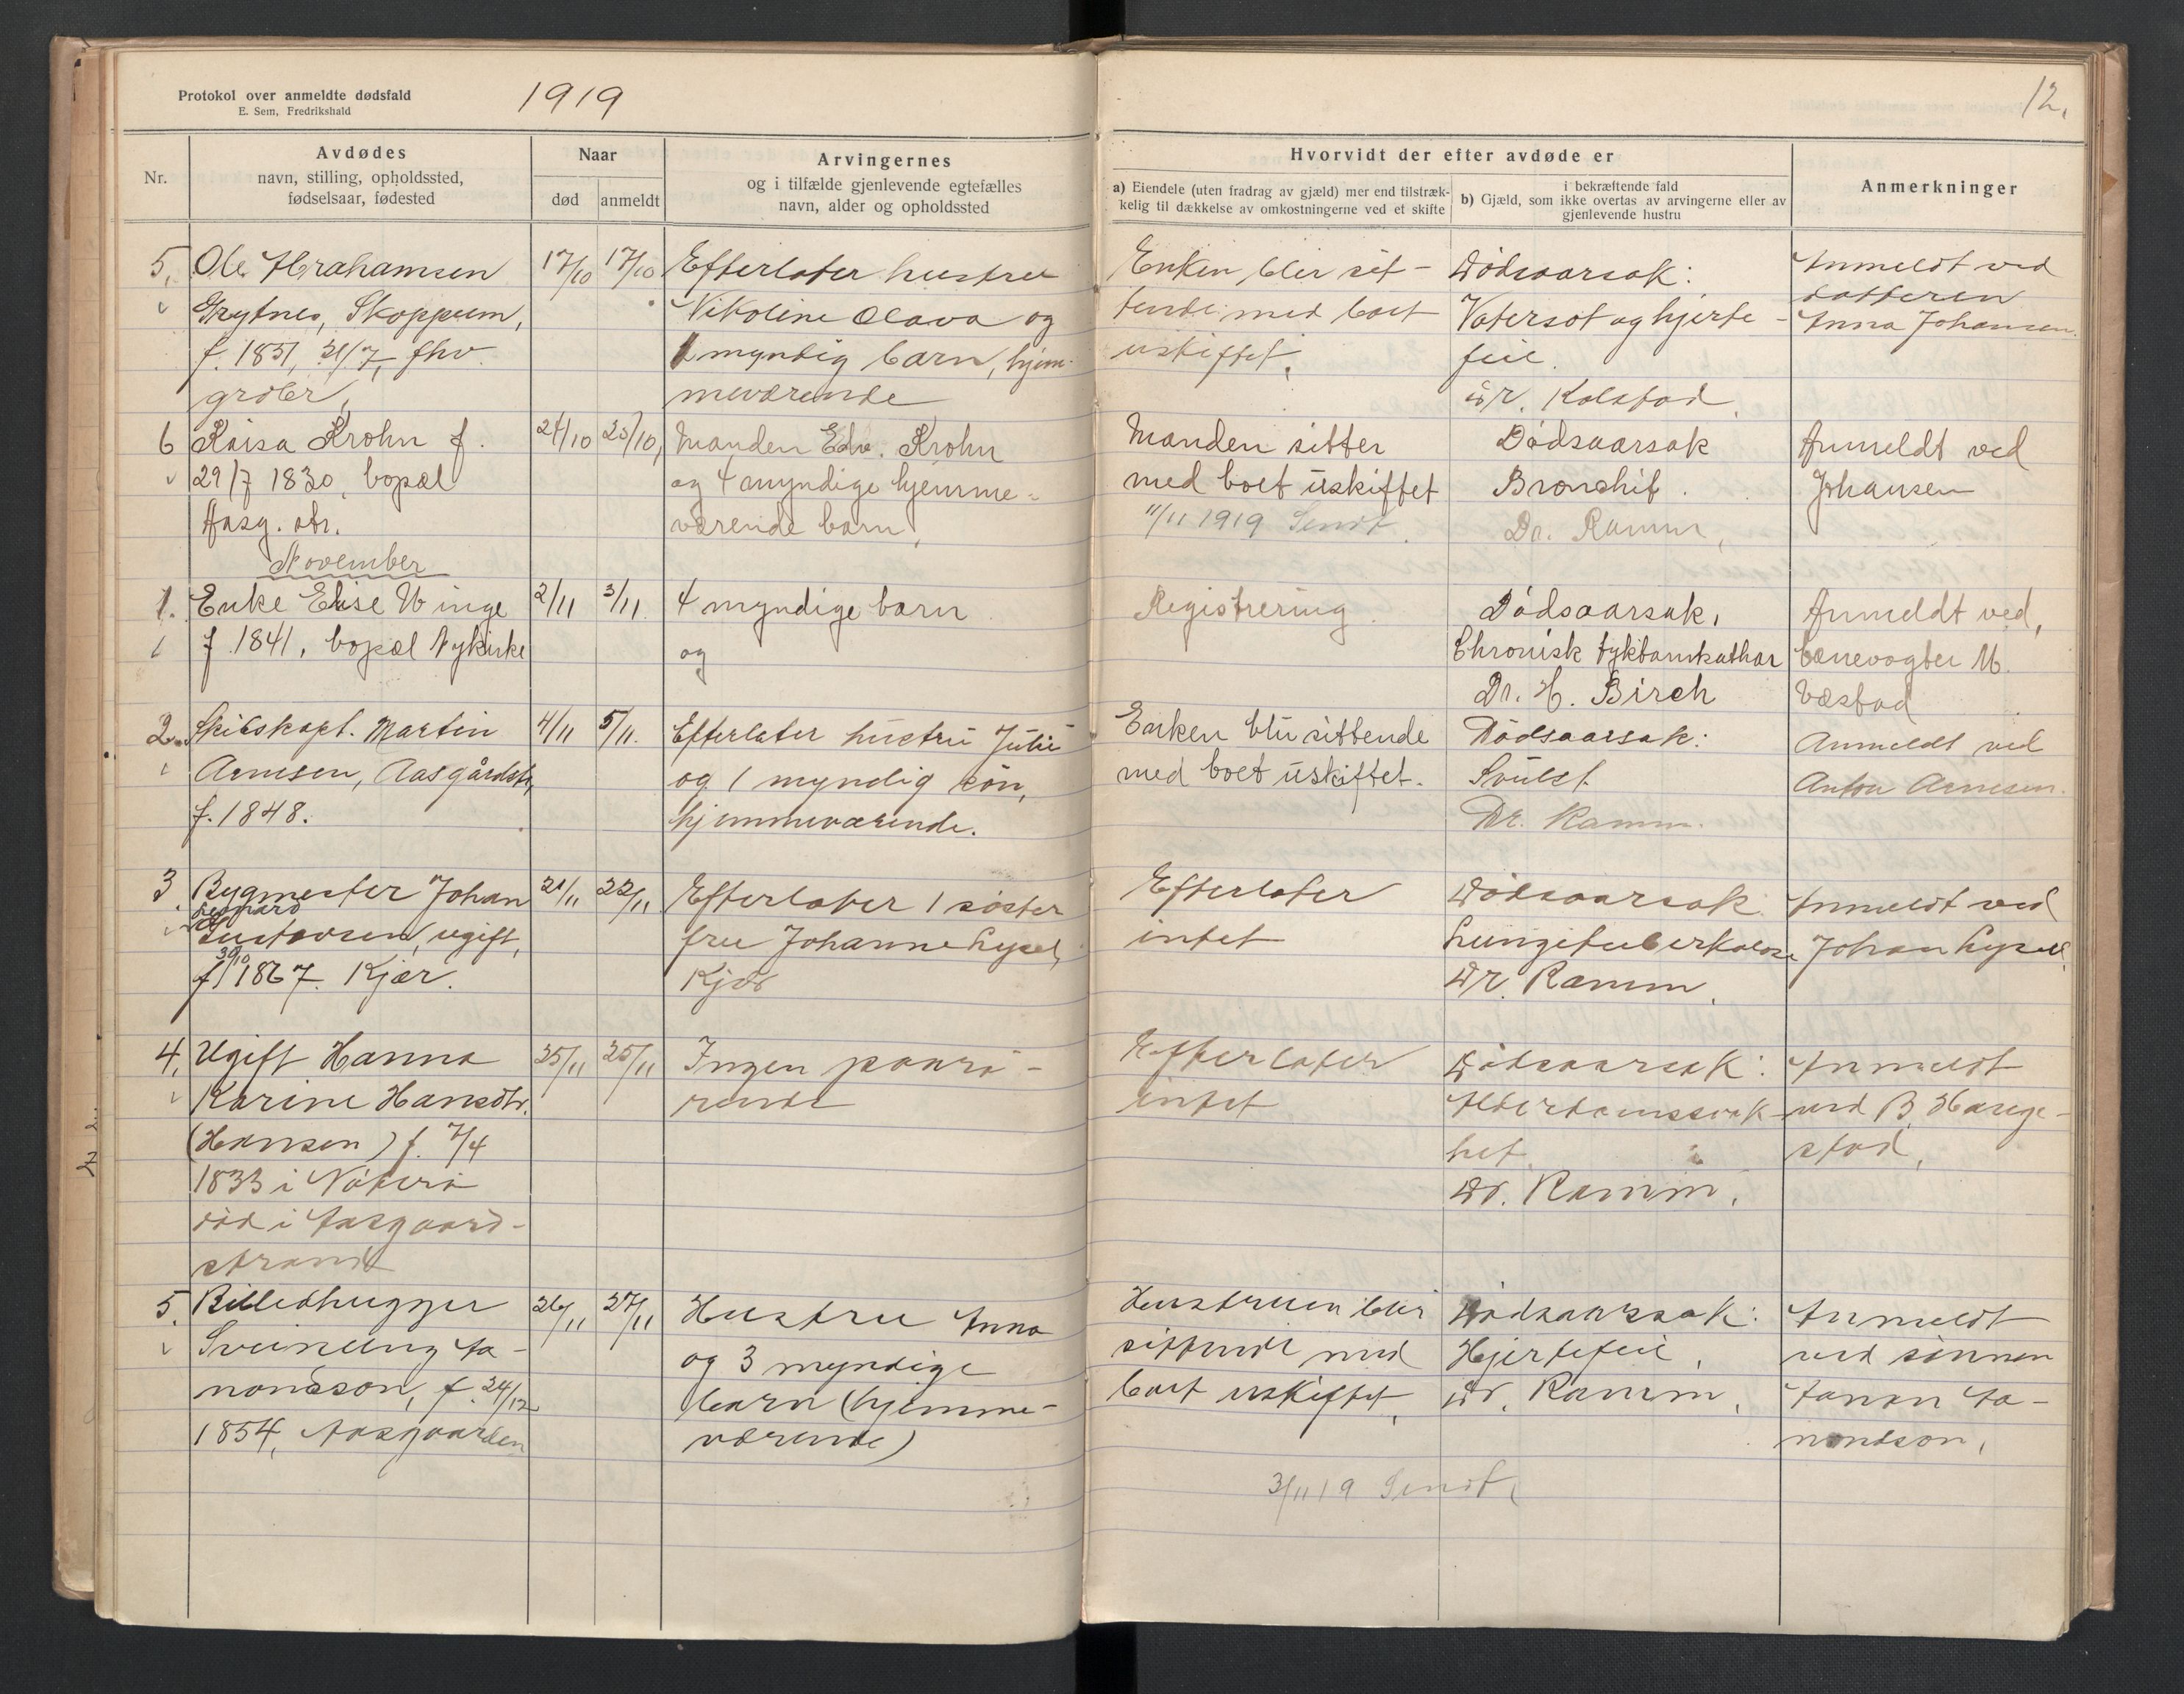 Protokol over anmeldte dødsfald
E. Sem, Fredrikshald
1919
Nr.
Avdødes
navn, stilling, opholdssted,
fødselsaar, fødested
Naar
død
anmeldt
Arvingernes
og i tilfælde gjenlevende egtefælles
navn, alder og opholdssted
5.
Ole Abrahamsen
Grytnes, Skoppum,
f. 1851, 31/7, fhv.
17/10
17/10
Efterlater hustru
Nikoline Olava og
myndig barn, hjem-
meværende
6
Kaisa Krohn f.
29/7 1830, bopæl
Aasg. str.
24/10
25/10,
Manden Edv. Krohn
og 4 myndige hjemme-
værende barn,
November
1.
Enke Elise Winge
f. 1841, bopæl Nykirke
2/11
3/11.
4 myndige barn
og
2.
Skibskapt. Martin
Arnesen, Aasgårdstr,
f. 1848.
4/11
5/11.
Efterlater hustru Julie
og 1 myndig søn,
hjemmeværende.
3
Bygmester Johan
Gustavsen, ugift,
30/10
f. 1867. Kjær.
21/11
22/11
Efterlater 1 søster
fru Johanne Lysell,
Kjær
4.
Ugift Hanna
Karine Hansdtr.
(Hansen) f. 7/4
1833 i Nøterø
død i Aasgaard-
strand
25/11
25/11
Ingen paarø-
rende
5.
Billedhugger
Sveinung Aa-
nondsson, f. 24/12
1854, Aasgaarden
26/11
27/11
Hustru Anna
og 3 myndige
barn (hjemme-
værende)
12.
Hvorvidt der efter avdøde er
a) Eiendele (uten fradrag av gjæld) mer end tilstræk-
kelig til dækkelse av omkostningerne ved et skifte
i bekræftende fald
b) Gjæld, som ikke overtas av arvingerne eller av
gjenlevende hustru
Anmerkninger
Enken blir sit-
tende med boet
uskiftet.
Dødsaarsak:
Vatersot og hjerte-
feil.
Dr. Kolstad.
Anmeldt ved
datteren
Anna Johansen.
Manden sitter
med boet uskiftet
11/11 1919 Sendt.
Dødsaarsak
Bronchit.
Dr. Ramm,
Anmeldt ved
Johansen
Registrering.
Dødsaarsak,
Chronisk tyktarmkathar
Dr. H. Birch
Anmeldt ved,
banevogter M.
Væstad
Enken blir sittende
med boet uskiftet.
Dødsaarsak:
Svulst.
Dr. Ramm.
Anmeldt ved
Anton Arnesen.
Efterlater
intet
Dødsaarsak
Lungetuberkulose
Dr. Ramm.
Anmeldt ved
Johan Lysell.
Efterlater
intet
Dødsaarsak:
Alderdomssvak-
het
Dr. Ramm.
Anmeldt
ved B. Hauge-
stad,
Hustruen blir
sittende med
boet uskiftet,
Dødsaarsak:
Hjertefeil,
Dr. Ramm,
Anmeldt
ved sønnen
Aanon Aa-
nondson,
3/11 19 Sendt,